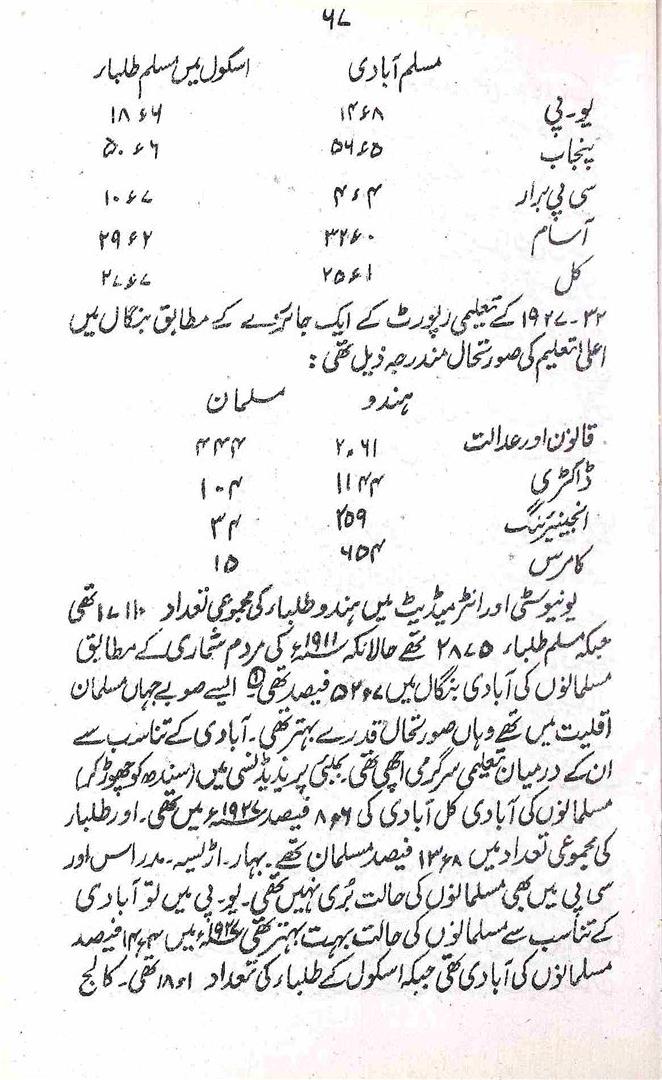 ۶۷
مسلم آبادی اسکول میں مسلم طلبار
یو۔پی ۱۴ء۸ ۱۸ء۶
پنجاب ۵۶ء۵ ۵۰ء۶
سی پی برار ۴ء۴ ۱۰ء۷
آسام ۳۲ء۰ ۲۹ء۲
کل ۲۵ء۱ ۲۷ء۷
۳۲۔۱۹۲۷ کے تعلیمی رپورٹ کے ایک جائزے کے مطابق بنگال میں
اعلیٰ تعلیم کی صورتحال مندرجہ ذیل تھی:
ہندو مسلمان
قانون اور عدالت ۲۰۶۱ ۴۴۴
ڈاکٹری ۱۱۴۴ ۱۰۴
انجینیرنگ ۲۵۹ ۳۴
کامرس ۶۵۴ ۱۵
یونیوسٹی اور انٹرمیڈیٹ میں ہندو طلبار کی مجموعی تعداد تھی
جبکہ مسلم طلباء ۲۸۷۵ تھے حالانکہ ۱۹۱۱ء کی مردم شماری کے مطابق
مسلمانوں کی آبادی بنگال میں ۵۲ء۷ فیصد تھی(۱) ایسے صوبے جہاں مسلمان
اقلیت میں تھے وہاں صورتحال قدرے بہتر تھی۔ آبادی کے تناسب سے
ان کے درمیان تعلیمی سرگرمی اچھی تھی۔ بمبئی پریذیڈنسی میں (سندھ کو چھوڑ کر)
مسلمانوں کی آبادی کل آبادی کی ۸ء۶ فیصد ۱۹۲۷ء میں تھی۔ اور طلبار
کی مجموعی تعداد میں ۱۳ء۸ فیصد مسلمان تھے۔ بہار۔ اڑیسہ۔ مدراس اور
سی پی میں بھی مسلمانوں کی حالت بُری نہیں تھی۔ یو۔پی میں تو آبادی
کے تناسب سے مسلمانوں کی حالت بہت بہتر تھی ۱۹۲۷ء میں ۱۴ء۳ فیصد
مسلمانوں کی آبادی تھی جبکہ اسکول کے طلباء کی تعداد ۱۸ء۱ تھی۔ کالج